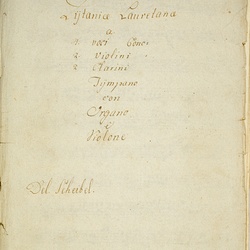 Lÿtania Lauretana
a
4 voci Conc:
2 Violini
2 Clarini
Tÿmpano
con
Organo
e
Violone
Del Scheibel.